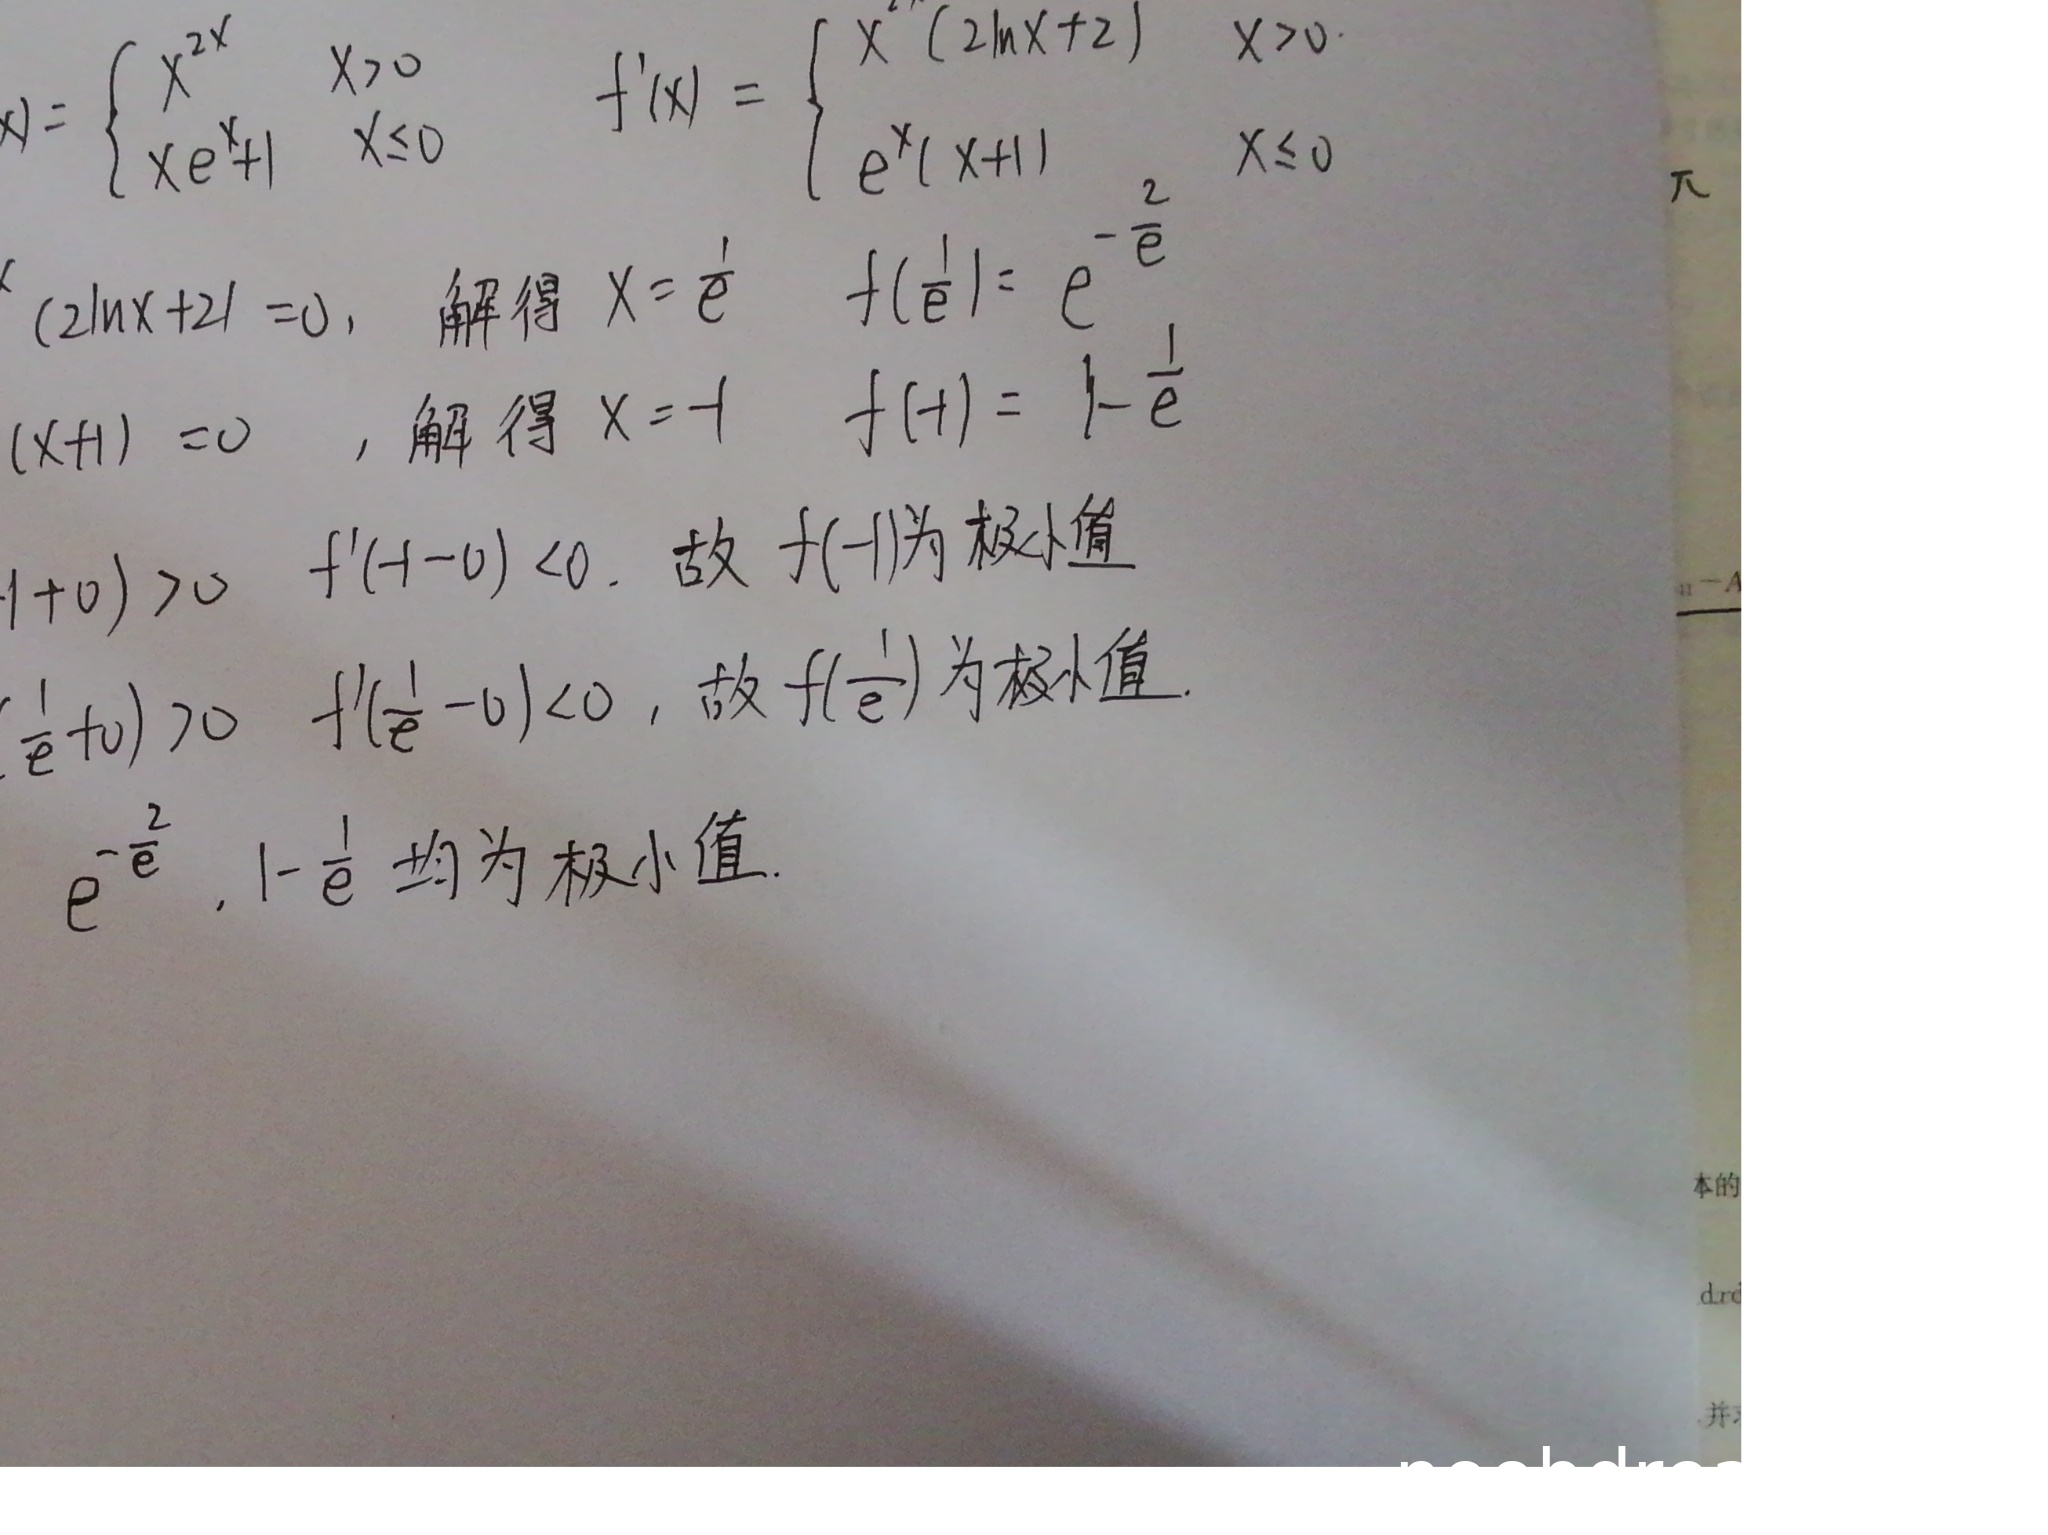 x)= { x^{2x} x>0 f'(x) = { x^{2x}(2lnx+2) x>0.
xe^x+1 x≤0 e^x(x+1) x≤0
π
x (2lnx+2) =0, 解得 x = 1/e f(1/e)= e^{-2/e}
(x+1) =0 , 解得 x=-1 f(-1) = 1-1/e
1+0) >0 f'(-1-0) <0. 故 f(-1)为极小值
-A
(1/e+0) >0 f'(1/e-0)<0, 故 f(1/e)为极小值.
e^{-2/e}, 1-1/e 均为极小值.
本的